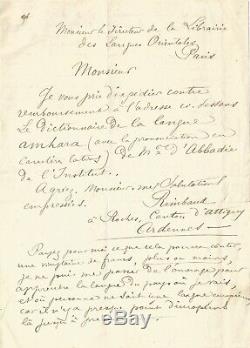 Monsieur le Directeur de la Librairie
des Langues Orientales
Paris
Monsieur
Je vous prie d'expédier contre
remboursement à l'adresse ci-dessous
Le Dictionnaire de la langue
amhara (avec la prononciation en
caractères latins) de M. d'Abbadie
de l'Institut.
Agréez, Monsieur, mes Salutations
empressées.
Rimbaud
à Roches, Canton d'Attigny
Ardennes
Payez pour moi ce que cela pourra coûter,
une vingtaine de francs, plus ou moins,
je ne puis me passer de l'ouvrage pour
apprendre la langue du pays où je vais,
et où personne ne sait une langue européenne
car il n'y a presque point d'européens
là jusqu'à présent